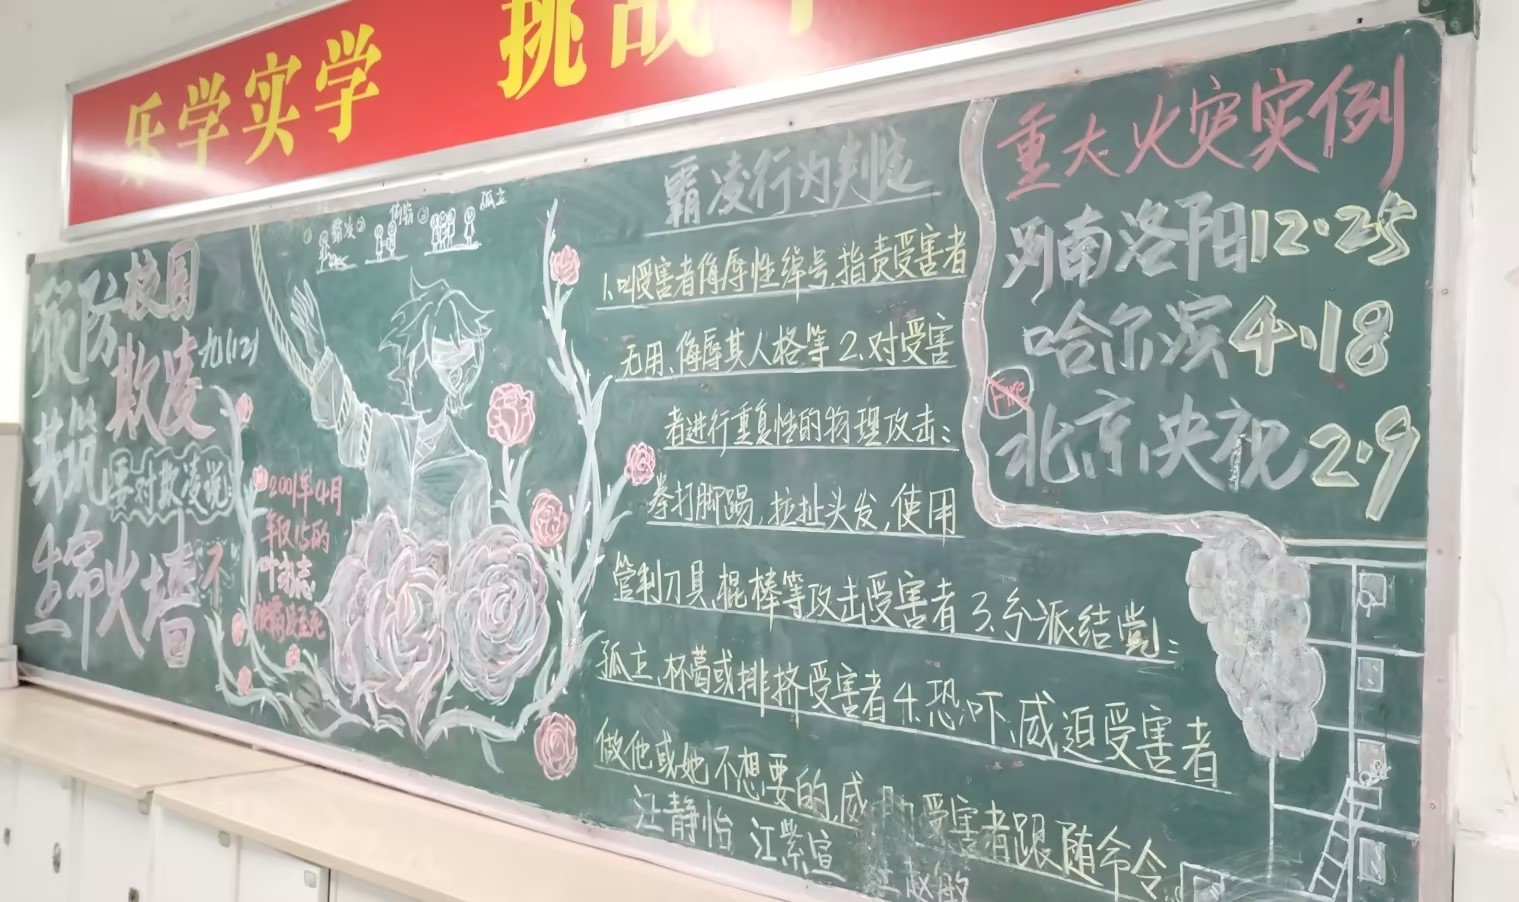 乐学实学 挑战
预防校园
欺凌
九(12)
共筑
要对欺凌说:
不
生命火墙
霸凌②
③
孤立
2001年4月
年仅15的
叶永志
霸凌行为判定
1.叫受害者侮辱性绰号,指责受害者
无用、侮辱其人格等 2.对受害
者进行重复性的物理攻击:
拳打脚踢,拉扯头发,使用
管制刀具、棍棒等攻击受害者 3.分派结党:
孤立、杯葛或排挤受害者 4.恐吓、威迫受害者
做他或她不想要的,威 受害者跟随命令
汪静怡 江紫宣
重大火灾实例
河南洛阳12·25
哈尔滨4·18
北京央视2·9